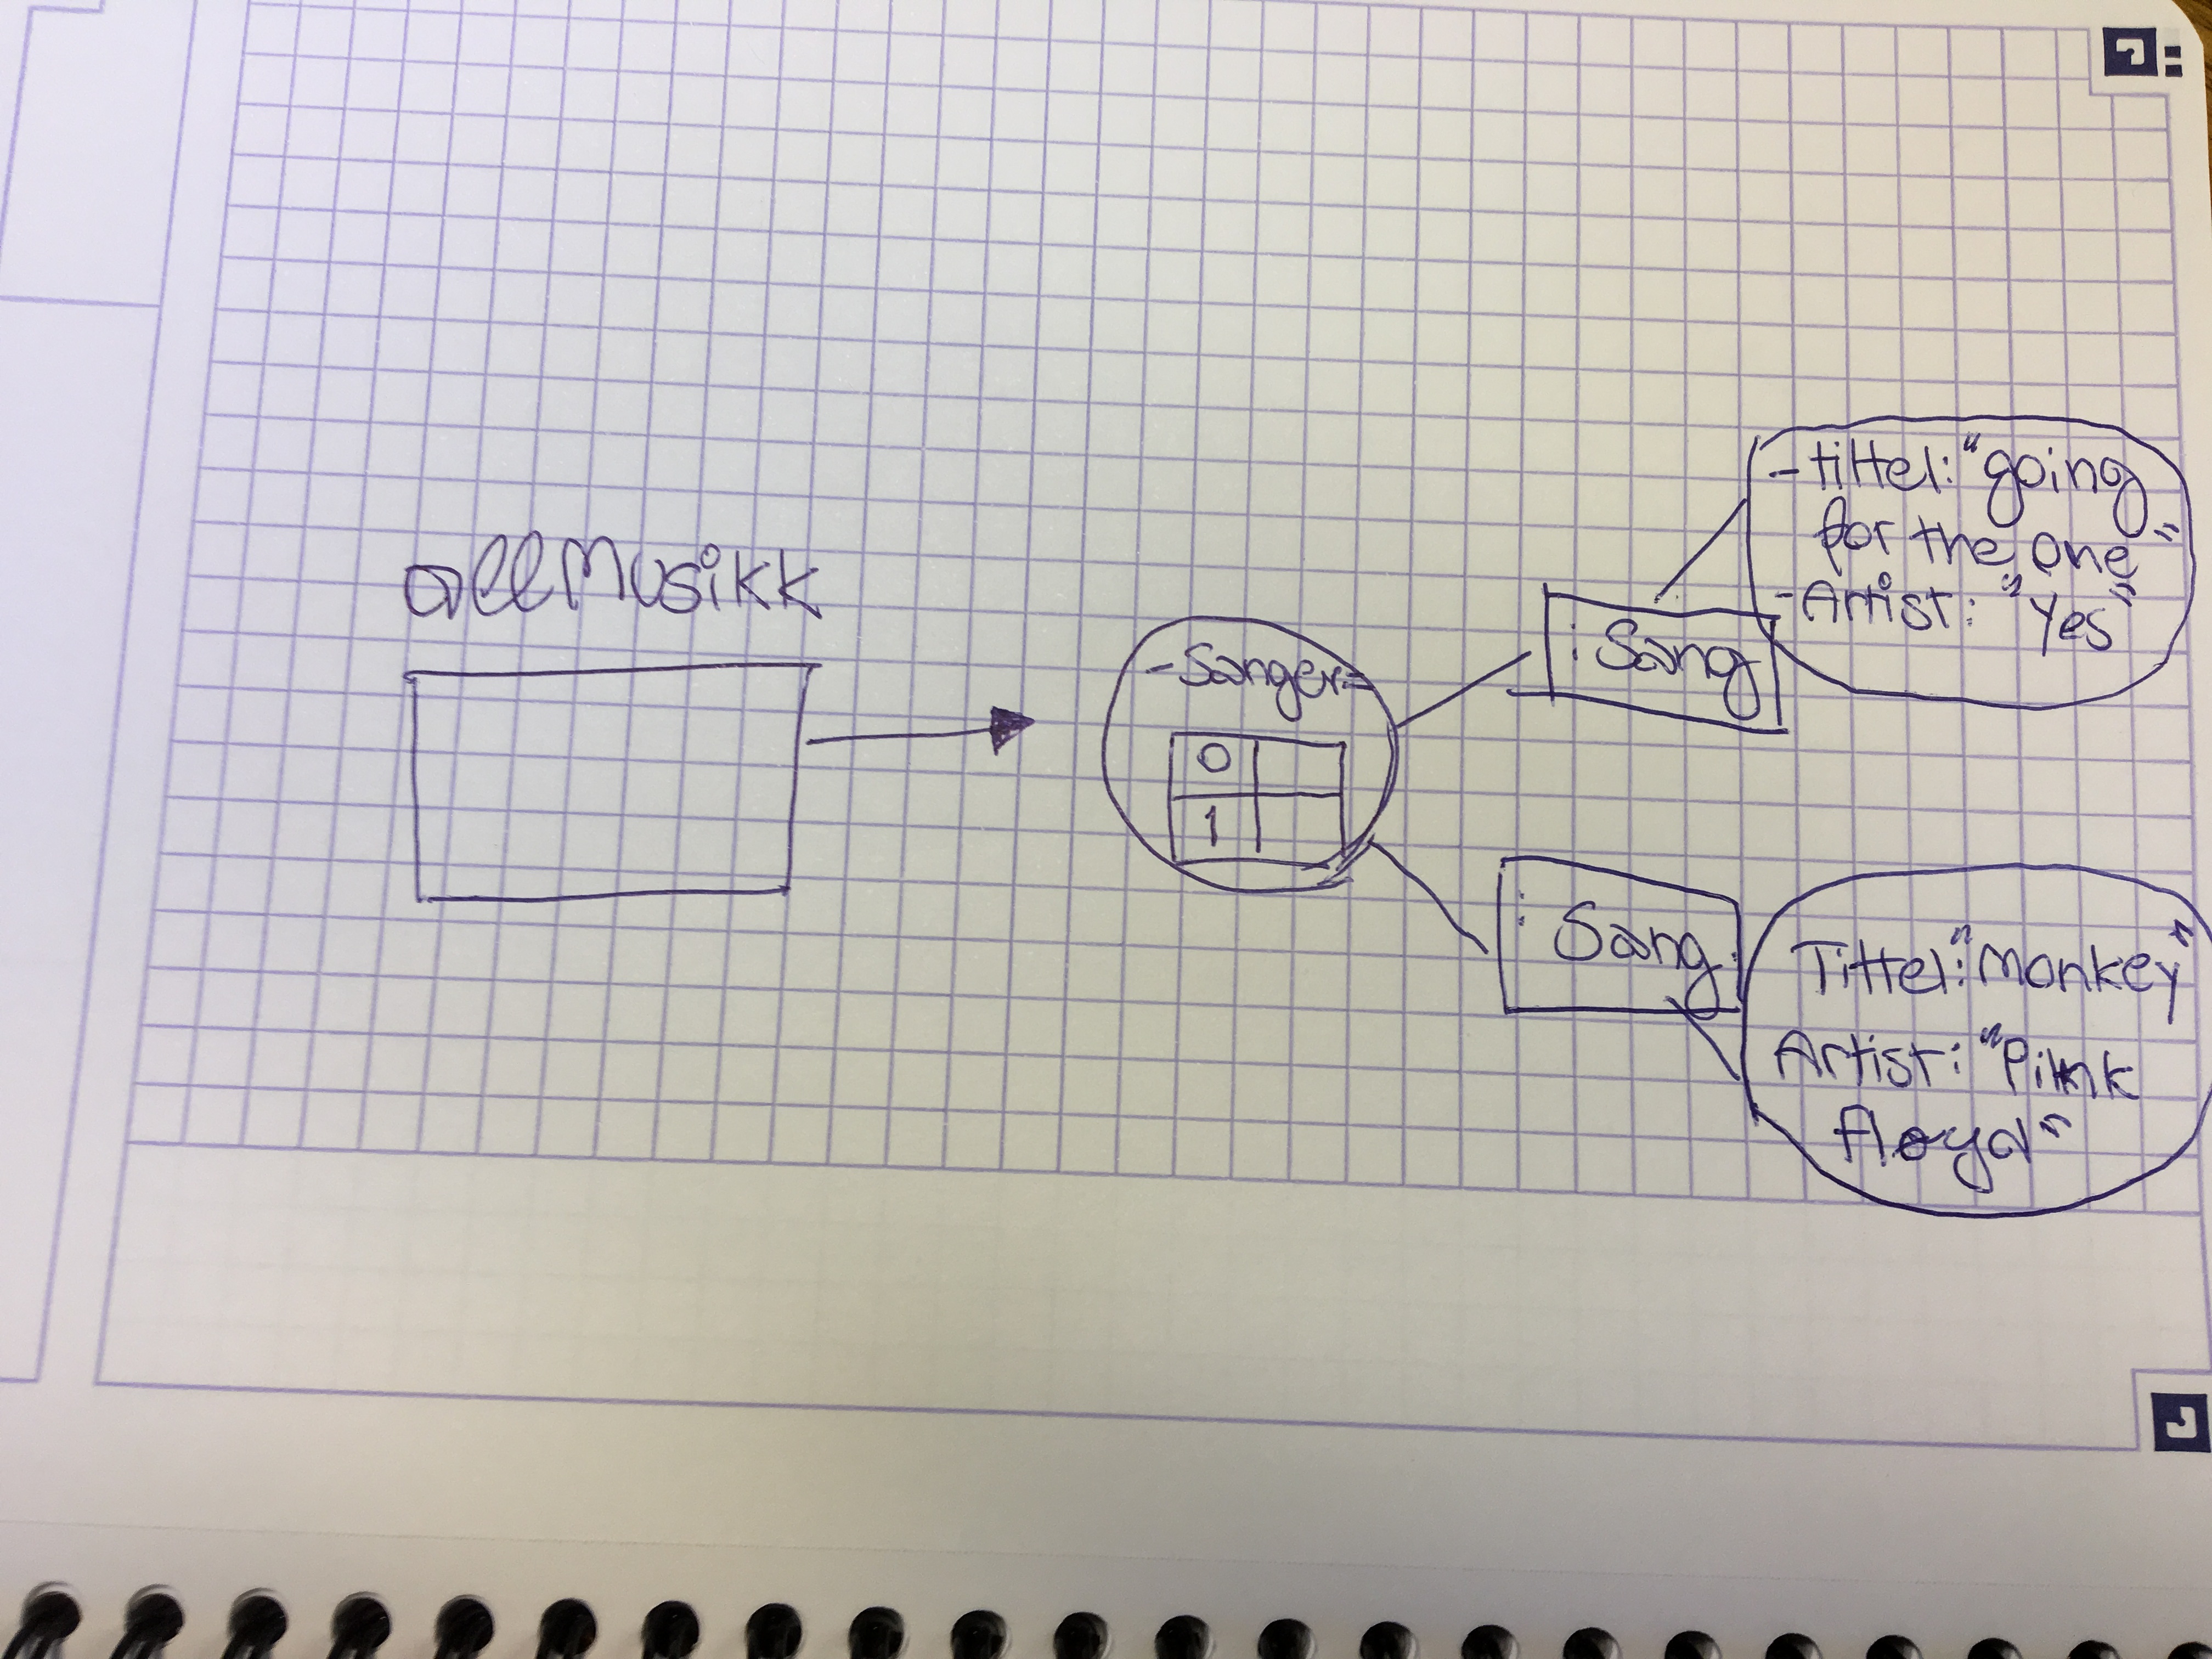 allmusikk
-Sanger:=
0
1
: Sang
-tittel: "going
for the one"
-Artist: "Yes"
: Sang:
Tittel: "Monkey"
Artist: "Pink